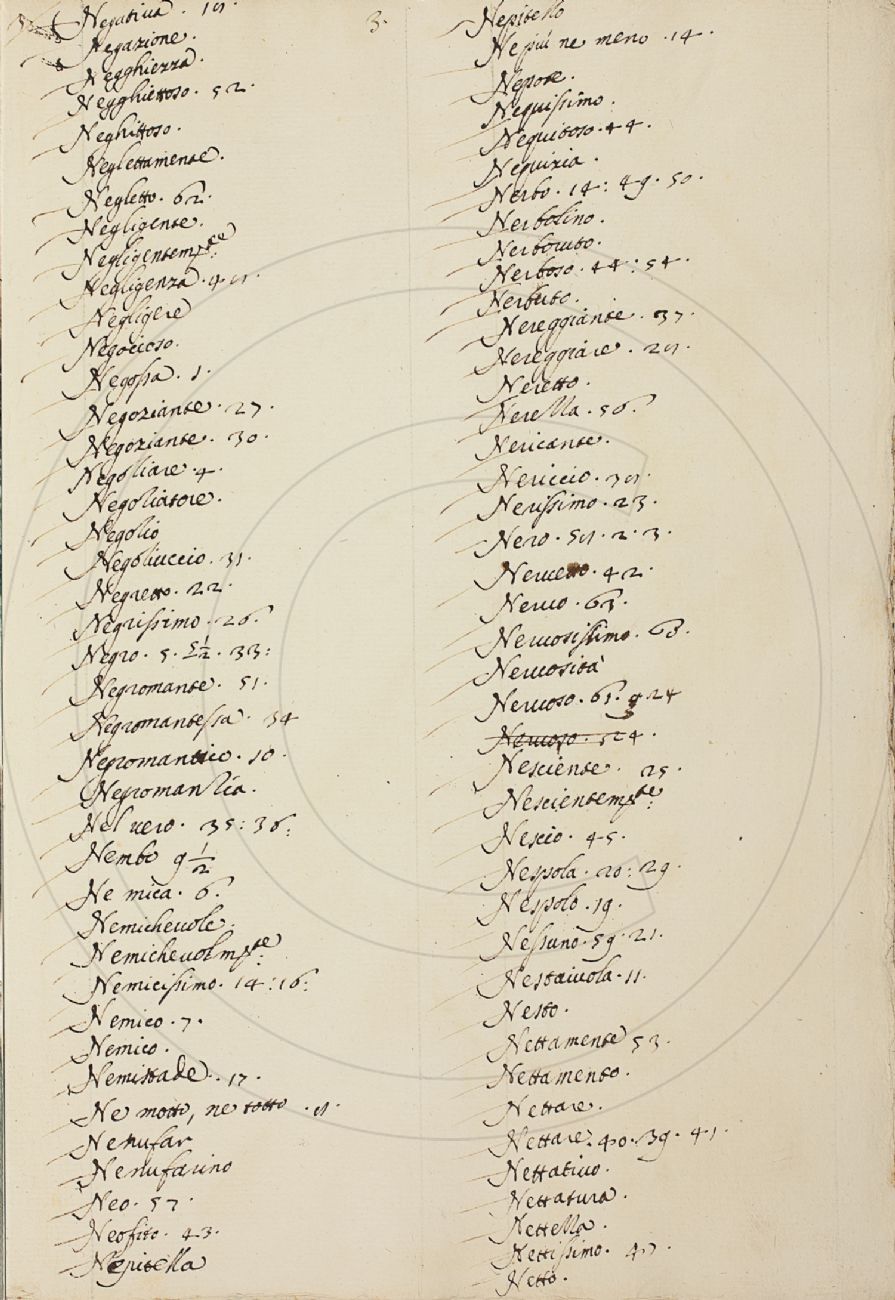 Negativa. 18.
3.
Negazione.
Negghienza.
Negghiettoso. 52.
Neghittoso.
Neglettamente.
Negletto. 62.
Negligente.
Negligentemte:
Negligenza. 48.
Negligere
Negocioso.
Negossa. 1.
Negoziante. 27.
Negoziante. 30.
Negoziare. 4.
Negoziatore.
Negozio
Negoziuccio. 31.
Negretto. 22.
Negrissimo. 26.
Negro. 5. 5½. 33:
Negromante. 51.
Negromantessa. 34
Negromantico. 10.
Negromanzia.
Nel uero. 35: 36:
Nembo 9½
Ne mica. 6.
Nemicheuole.
Nemicheuolmte:
Nemicissimo. 14: 16:
Nemico. 7.
Nemico.
Nemistade. 17.
Ne motto, ne totto. 8.
Nenufar
Nenufarino
Neo. 57.
Neofito. 43.
Nepitella
Nepitello
Ne più ne meno. 14.
Nepote.
Nequissimo.
Nequitoso. 44.
Nequizia.
Nerbo. 14: 49. 50.
Nerbolino.
Nerboruto.
Nerboso. 44: 54.
Nerbuto.
Nereggiante. 37.
Nereggiare. 28.
Neretto.
Nerella. 56.
Nericante.
Nericcio. 38.
Nerissimo. 23.
Nero. 58. 2. 3.
Neruetto. 42.
Neruo. 63.
Neruosissimo. 63.
Neruosità
Neruoso. 61. 24
Neruoso. 524.
Nesciente. 25.
Nescientemte:
Nescio. 45.
Nespola. 20: 29.
Nespolo. 19.
Nessuno. 59. 21.
Nestaiuola. 11.
Nesto.
Nettamente 53.
Nettamento.
Nettare.
Nettare. 40. 39. 41.
Nettatiuo.
Nettatura.
Nettella.
Nettissimo. 47.
Netto.